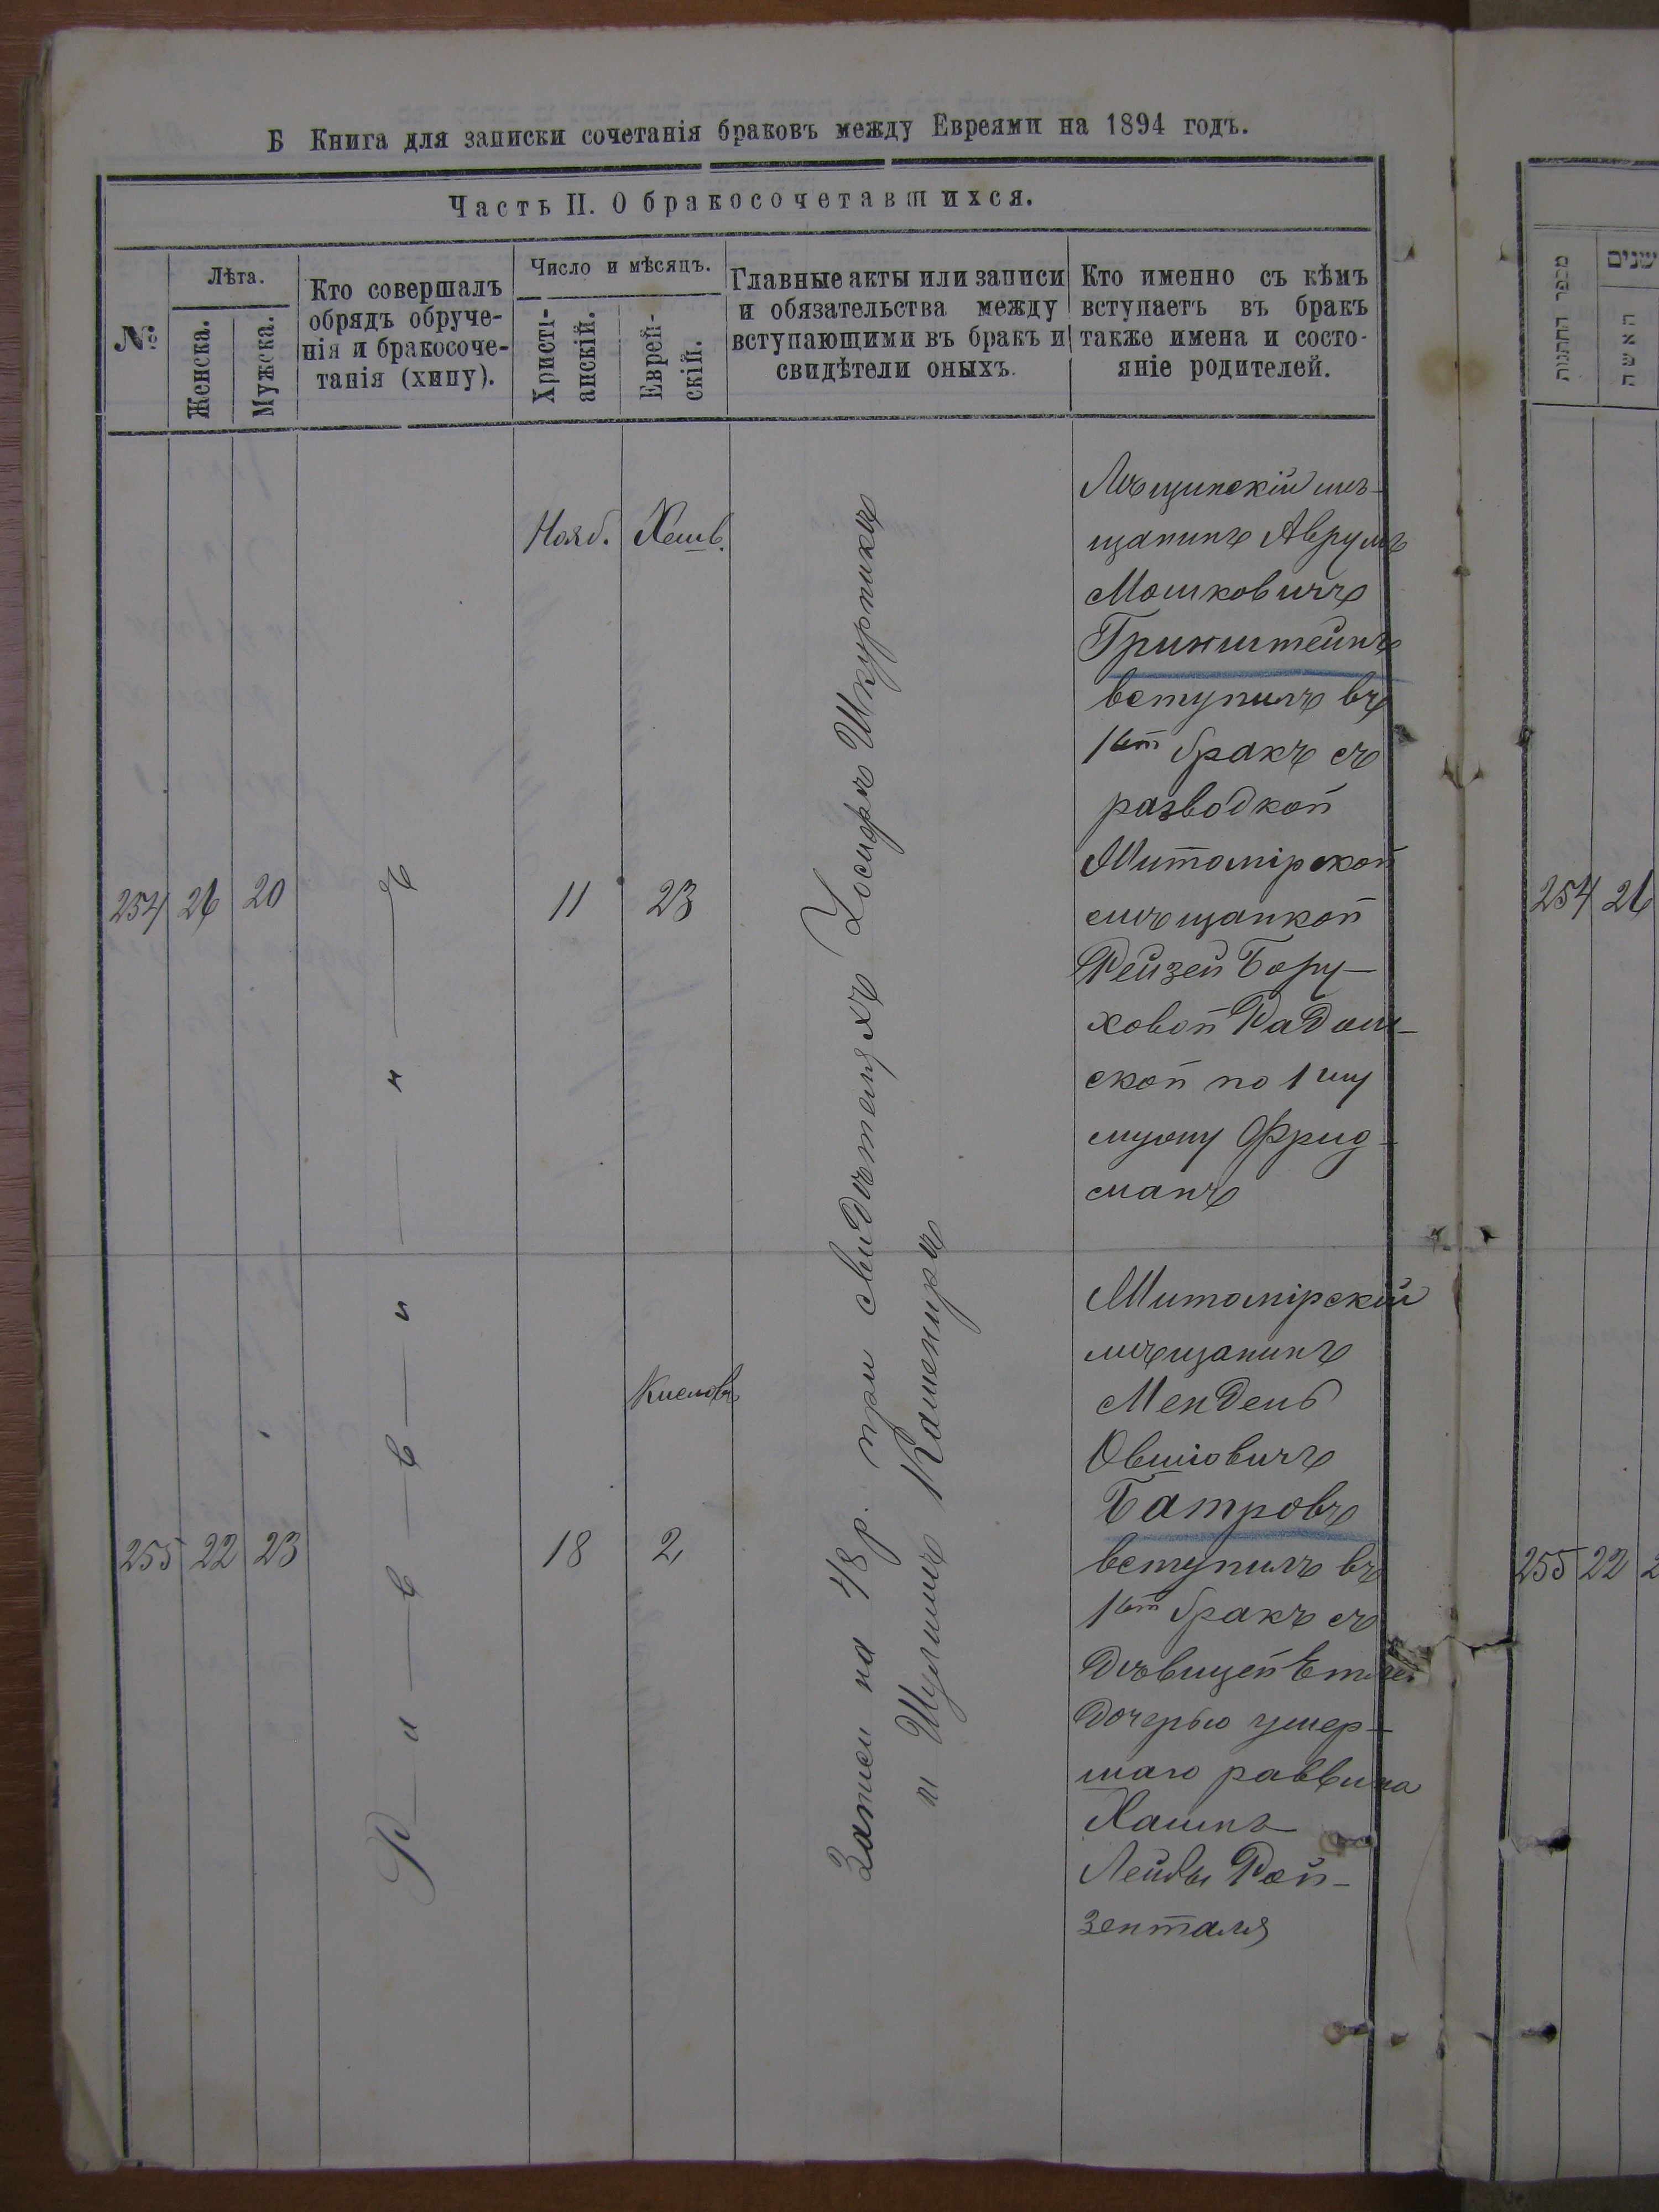 Б Книга для записки сочетанія браковъ между Евреями на 1894 годъ.
Часть II. О бракосочетавшихся.
№
Лѣта.
Женска.
Мужска.
Кто совершалъ
обрядъ обруче-
нія и бракосоче-
танія (хипу).
Число и мѣсяцъ.
Христі-
анскій.
Еврей-
скій.
Главные акты или записи
и обязательства между
вступающими въ бракъ и
свидѣтели оныхъ.
Кто именно съ кѣмъ
вступаетъ въ бракъ
также имена и состо-
яніе родителей.
254 26 20
Р—и—в—в—и—н—ъ
Нояб. Хешв.
11 23
Запись на 48 р. при свидѣтеляхъ Іосифъ Шкурникъ
и Шулимъ Камениръ
Лещинскій мѣ-
щанинъ Аврумъ
Мошковичъ
Гринштейнъ
вступилъ въ
1ый бракъ съ
разводкой
Житомірской
мѣщанкой
Рейзей Бору-
ховой Радом-
ской по 1му
мужу Фрид-
манъ
255 22 23
Кислевъ
18 2
Житомірскій
мѣщанинъ
Мендель
Овшіовичъ
Батровъ
вступилъ въ
1ый бракъ съ
дѣвицей
дочерью умер-
шаго раввина
Лейбы Рой-
зенталя
מספר החתנות
שנים
האשה
254 26
255 22 2